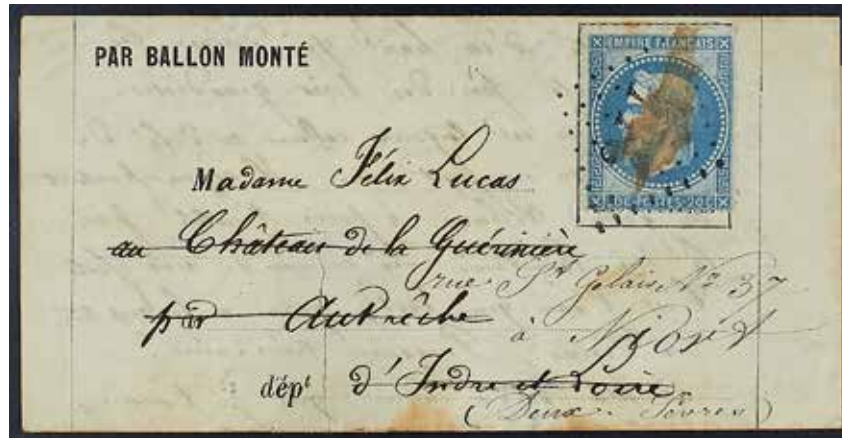 PAR BALLON MONTÉ
EMPIRE FRANÇAIS
POSTES 20 C
Madame Félix Lucas
au Château de la Guérinière
rue St Gelais No 37
par Autrèche
à Niort
dépt d'Indre et Loire
(Deux-Sèvres)